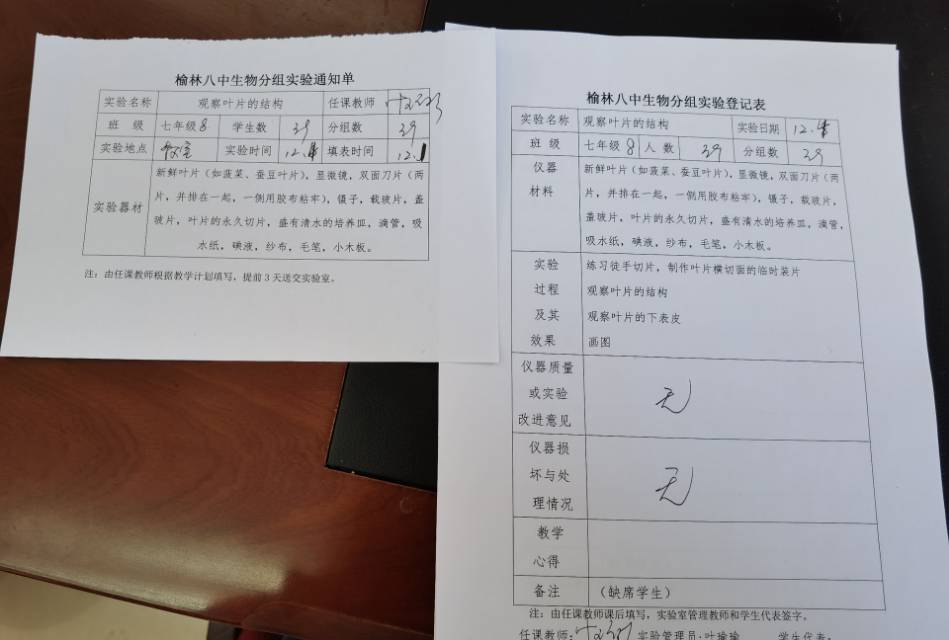 榆林八中生物分组实验通知单
实验名称 观察叶片的结构 任课教师
班 级 七年级8 学生数 39 分组数 39
实验地点 教室 实验时间 12.4 填表时间 12.1
实验器材
新鲜叶片（如菠菜、蚕豆叶片），显微镜，双面刀片（两
片，并排在一起，一侧用胶布粘牢），镊子，载玻片，盖
玻片，叶片的永久切片，盛有清水的培养皿，滴管，吸
水纸，碘液，纱布，毛笔，小木板。
注：由任课教师根据教学计划填写，提前3天送交实验室。
榆林八中生物分组实验登记表
实验名称 观察叶片的结构 实验日期
班 级 七年级8 人 数 39 分组数 39
仪器
材料
新鲜叶片（如菠菜、蚕豆叶片），显微镜，双面刀片（两
片，并排在一起，一侧用胶布粘牢），镊子，载玻片，
盖玻片，叶片的永久切片，盛有清水的培养皿，滴管，
吸水纸，碘液，纱布，毛笔，小木板。
实验 练习徒手切片，制作叶片横切面的临时装片
过程 观察叶片的结构
及其 观察叶片的下表皮
效果 画图
仪器质量
或实验 无
改进意见
仪器损
坏与处 无
理情况
教学
心得
备注 （缺席学生）
注：由任课教师课后填写，实验室管理教师和学生代表签字。
任课教师： 实验管理员：叶瑜瑜 学生代表：